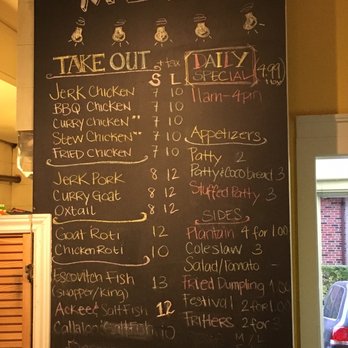 TAKE OUT + tax
S L
Jerk Chicken 7 10
BBQ Chicken 7 10
Curry Chicken** 7 10
Stew Chicken** 7 10
Fried Chicken 7 10
Jerk Pork 8 12
Curry Goat 8 12
Oxtail 8 12
Goat Roti 12
Chicken Roti 10
Escovitch Fish 13
(snapper/king)
Ackee & Saltfish 12
Callaloo Saltfish 10
DAILY
SPECIAL 4.99
11am-4pm
Appetizers
Patty 2
Patty & Coco bread 3
Stuffed Patty 3
SIDES
Plantain 4 for 1.00
Coleslaw 3
Salad/Tomato -
Fried Dumpling 1.00
Festival 2 for 1.00
Fritters 2 for 3
M/L